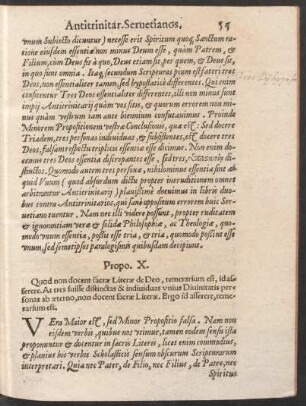 Antitrinitar. Seruetianos. 55
vnum Subiecto dicuntur) necesse erit Spiritum quoq, Sanctum ra-
tione eiusdem essentiæ non minus Deum esse, quàm Patrem, &
Filium, cùm Deus sit à quo, Deus etiam sit, per quem, & Deus sit,
in quo sunt omnia. Itaq, secundum Scripturas pium est fateri tres
Deos, non essentialiter tamen, sed hypostaticῶs differentes. Qui enim
consentur Tres Deos essentialiter differentes, illi non minus sunt
impij Antitrinitarij quàm vos estis, & quorum errorem non mi-
nus quàm vestrum iam ante biennium confutauimus. Proinde
Minorem Propositionem vestræ Conclusionis, quæ est: Sed docere
Triadem, tres personas indiuiduas, & subsistentes, est docere tres
Deos, falsam respectu triplicis essentiæ esse dicimus. Non enim do-
cemus tres Deos essentia discrepantes esse, sed tres,
distinctos. Quomodo autem tres personæ, nihilominus essentia sint ali-
quid Vnum (quod absurdum dictu propter ineruditionem vnusq
arbitrantur Antitrinitarij) planissimè theuimus in libris duo-
bus contra Antitrinitarios, qui sanè oppositum errorem huic Ser-
uetiano tuentur. Nam nec illi videre possunt, propter ruditatem
& ignorantiam veræ & solidæ Philosophiæ, ac Theologiæ, quomo-
do vnum essentia, possit esse tria, & tria, quomodo possint esse
vnum, sed semetipsos paralogismis quibusdam decipiunt.
Propo. X.
Quod non docent sacræ Literæ de Deo, temerarium est, id asse-
rere. At tres fuisse distinctas & indiuiduas vnius Diuinitatis per-
sonas ab æterno, non docent sacræ Literæ. Ergo id asserere, teme-
rarium est.
VEra Maior est, sed Minor Propositio falsa. Nam non
eisdem verbis, quibus nos vtimur, tamen eodem sensu ista
proponuntur & docentur in sacris Literis, licet enim commodius,
& planius hos verbis Scholasticis sensum obscurum Scripturarum
interpretari. Quia nec Pater, de Filio, nec Filius, de Patre, nec
Spiritus